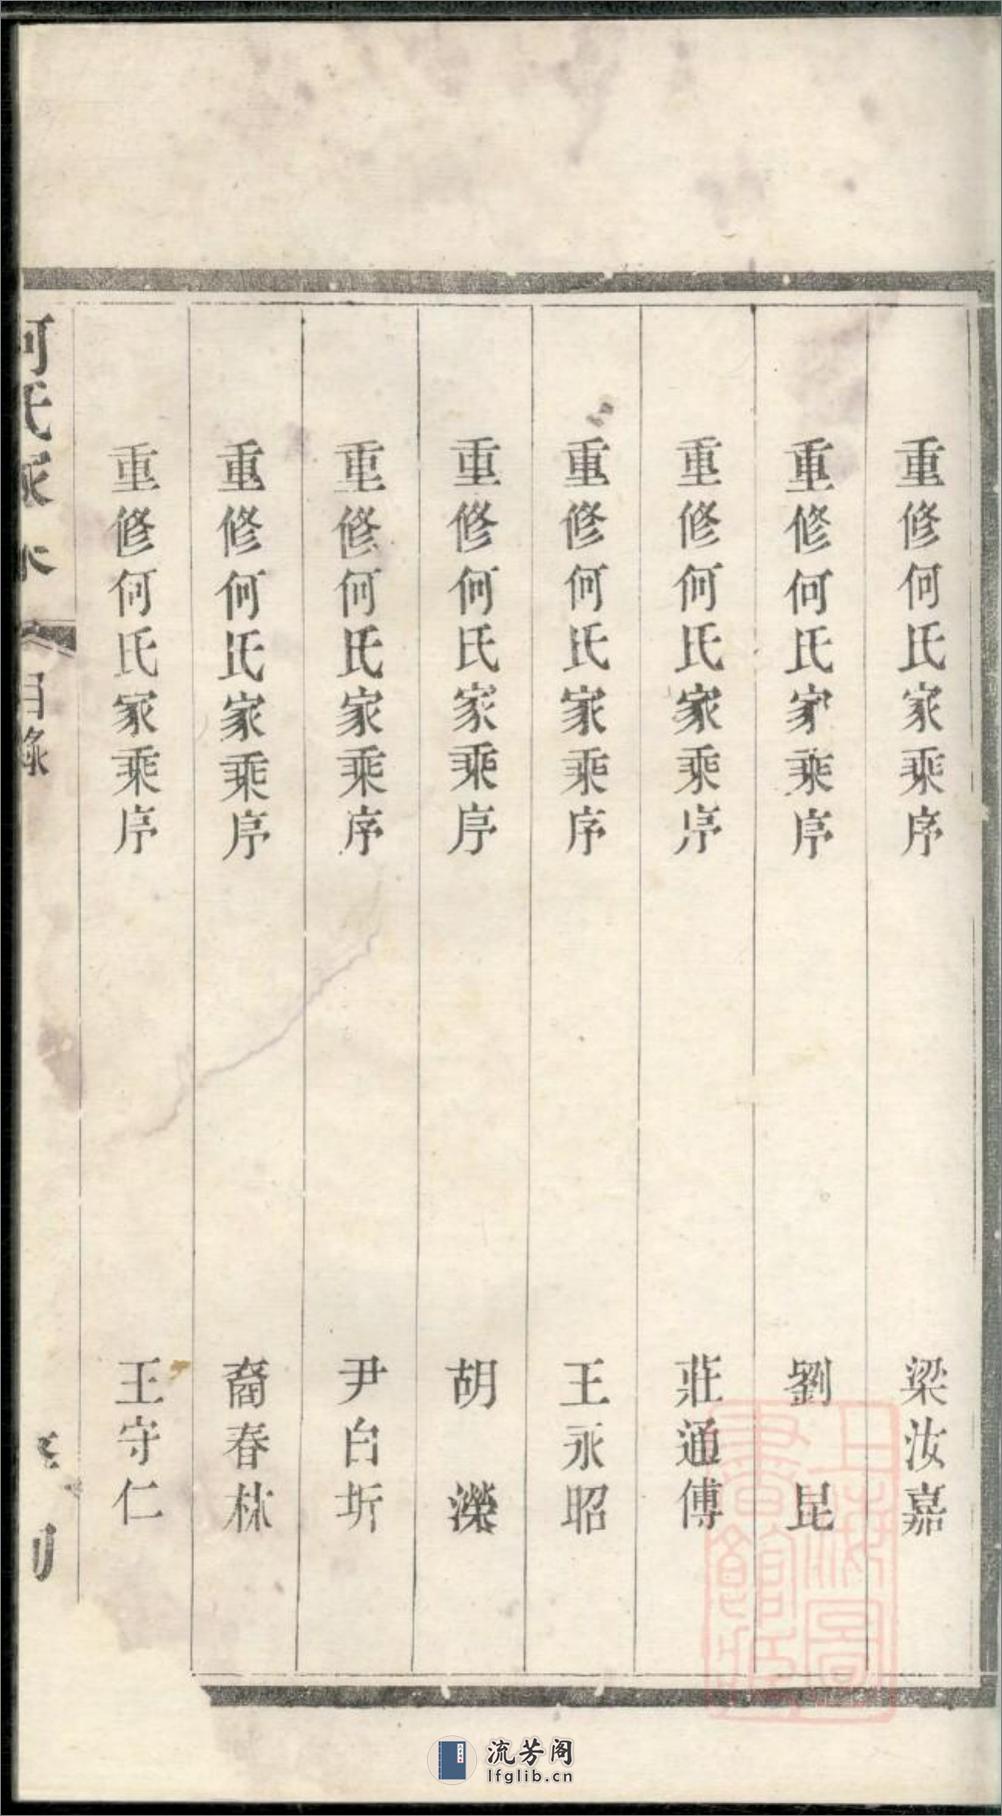 重修何氏家乘序 梁汝嘉
重修何氏家乘序 劉昆
重修何氏家乘序 莊通傅
重修何氏家乘序 王永昭
重修何氏家乘序 胡濙
重修何氏家乘序 尹白圻
重修何氏家乘序 裔春林
重修何氏家乘序 王守仁
何氏家
目錄
上海圖
書館藏
流芳阁
lfglib.cn